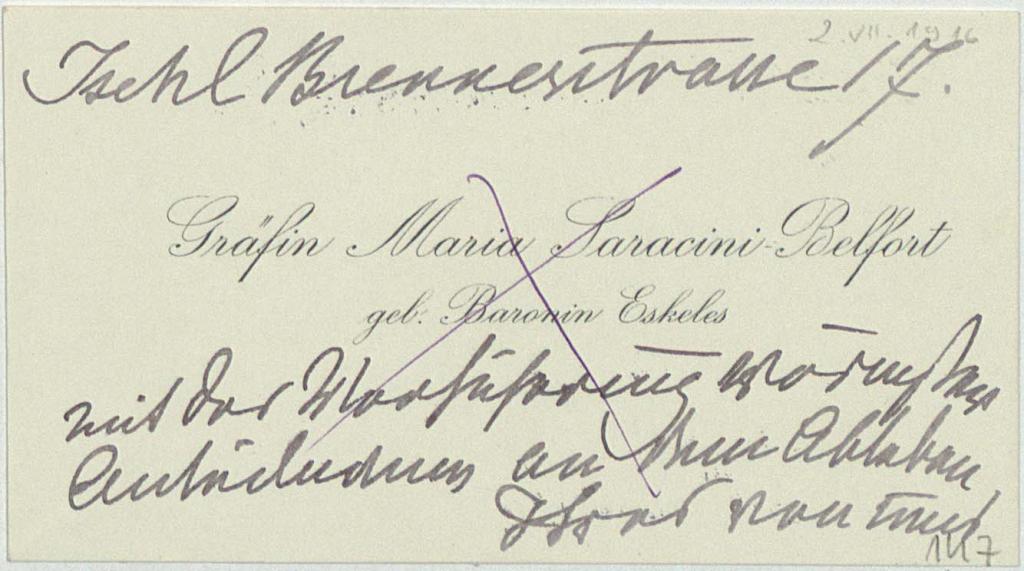 2. VII. 1916
Ischl Brennerstrasse 17.
Gräfin Maria Saracini-Belfort
geb: Baronin Eskeles
mit der Versicherung wärmsten
Anteilnahme an dem Ableben
Ihres von uns
1117